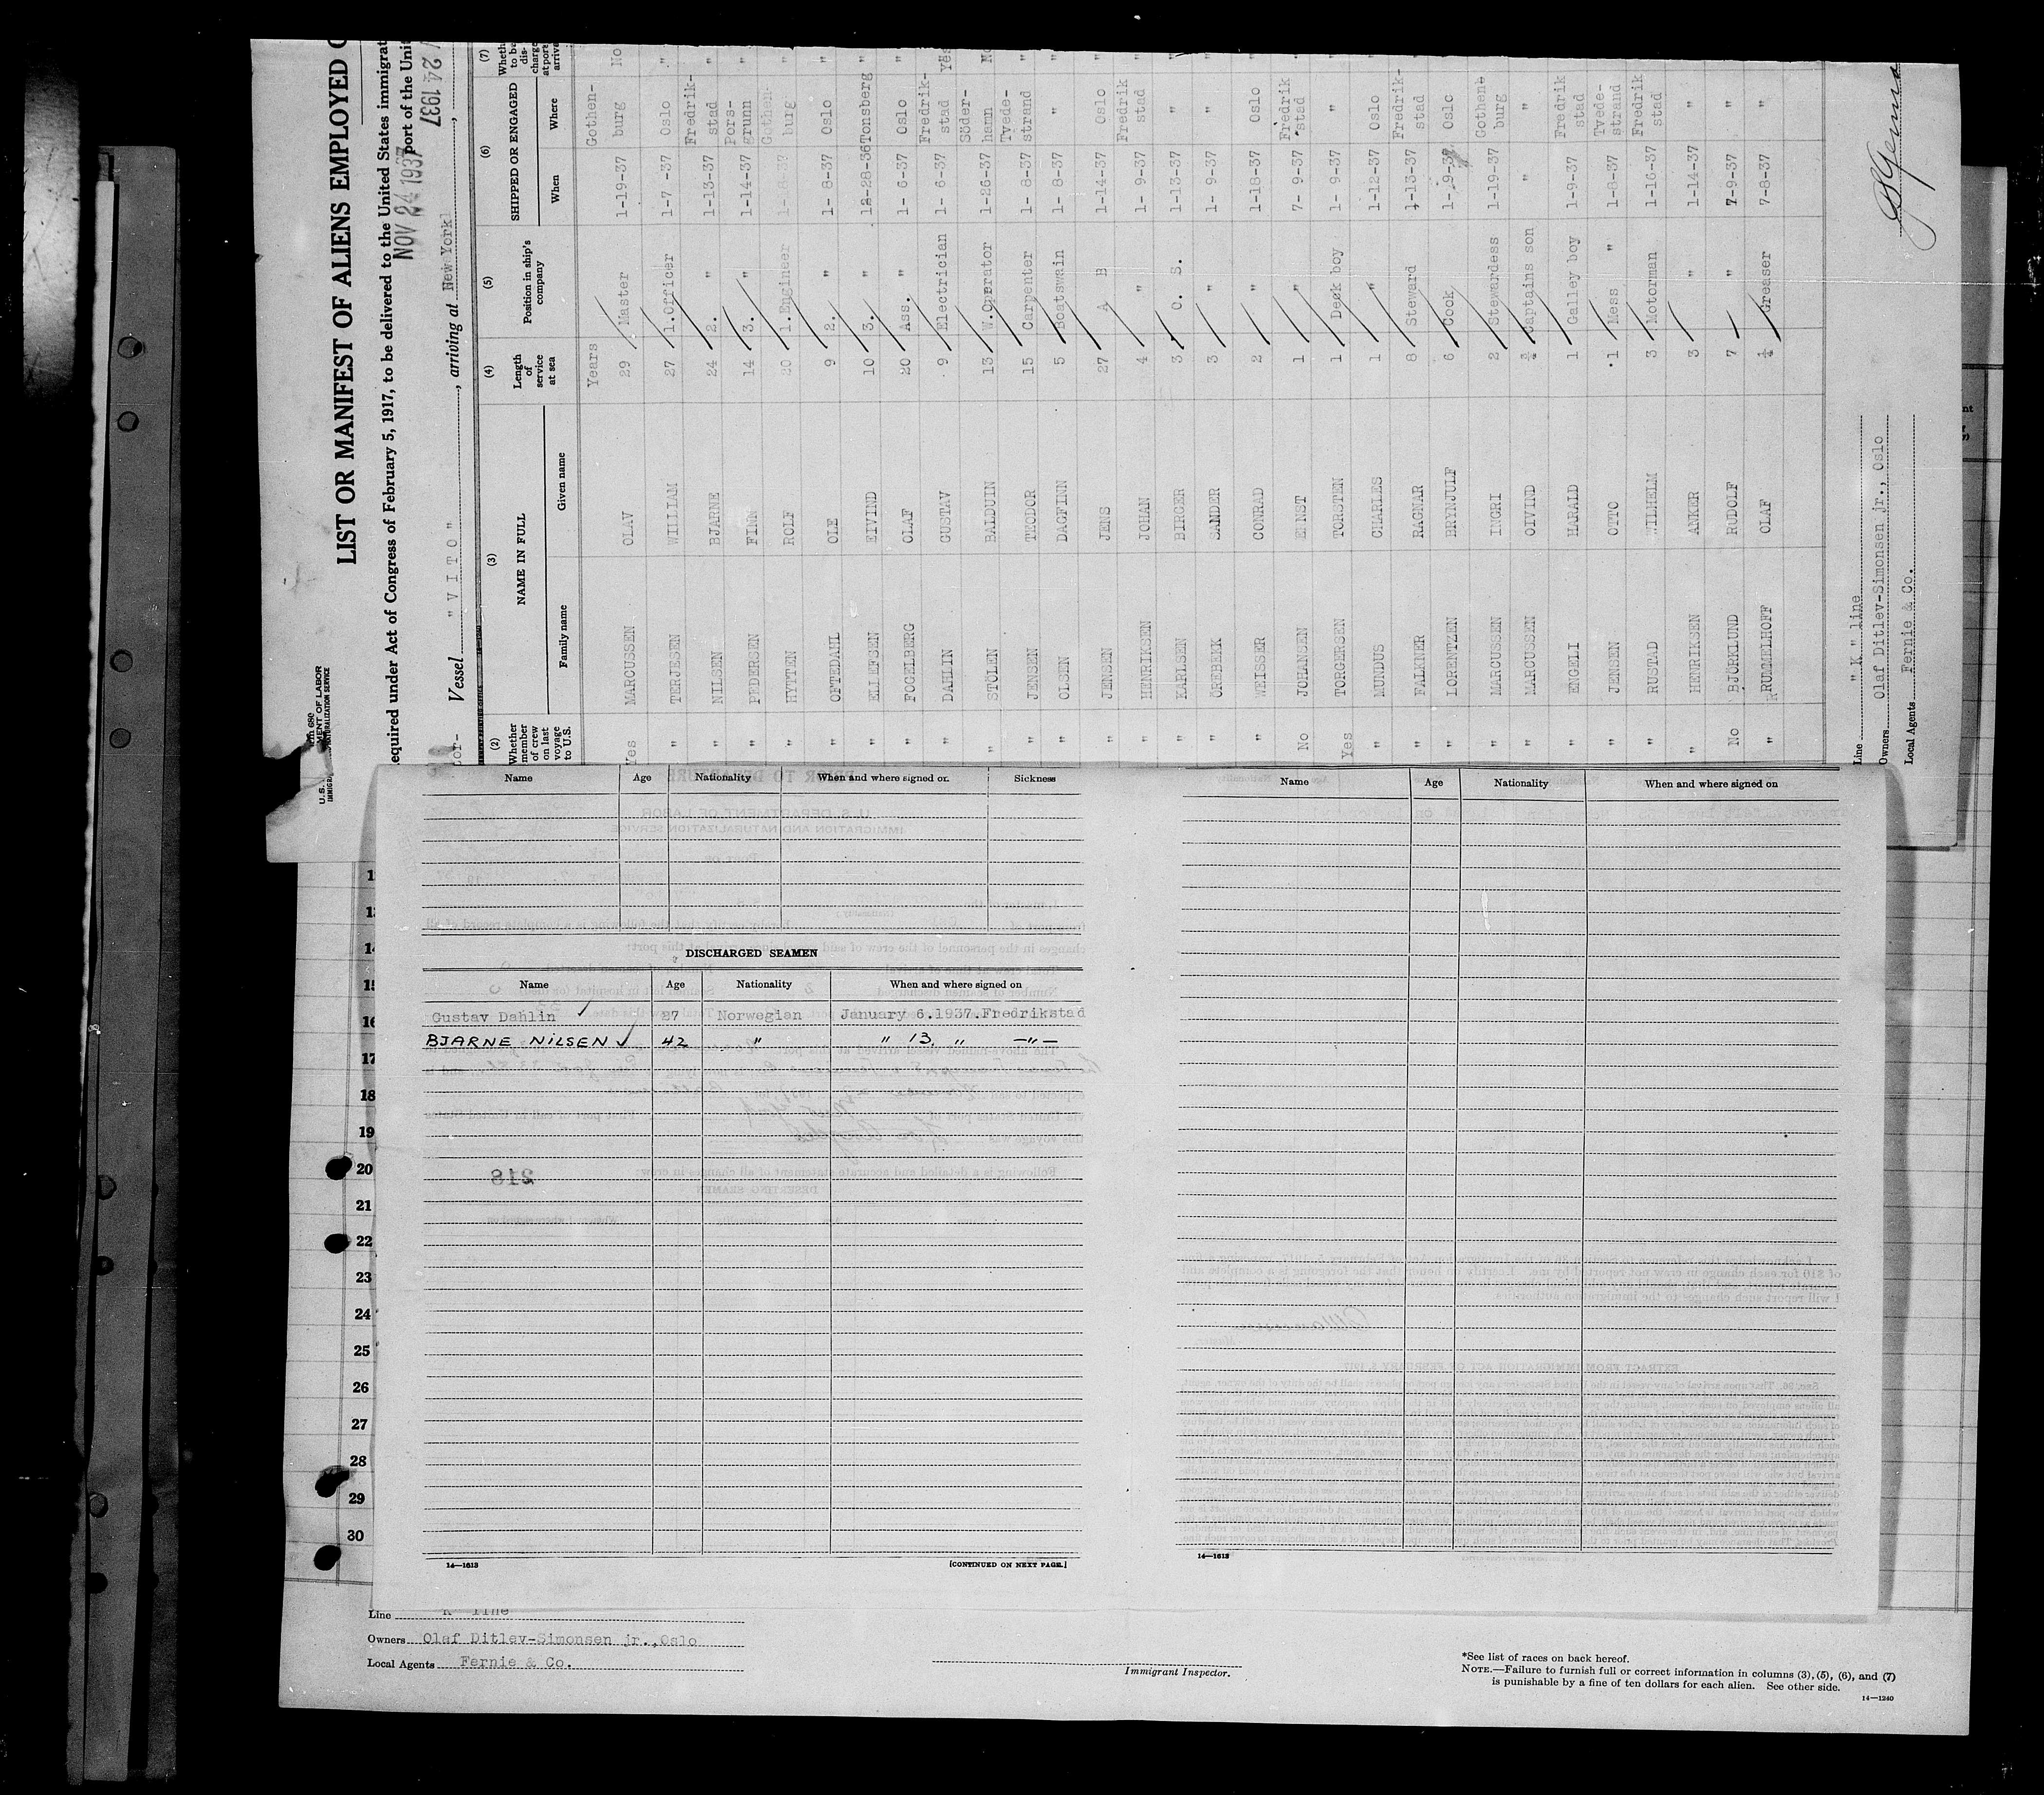 LIST OR MANIFEST OF ALIENS EMPLOYED
equired under Act of Congress of February 5, 1917, to be delivered to the United States immigrat
port of the Unit
NOV 24 1937
24 1937
U.S.
MENT OF LABOR
NATURALIZATION SERVICE
Vessel " V I T O " , arriving at New York
(2) Whether member of crew on last voyage to U.S.
(3) NAME IN FULL
Family name Given name
(4) Length of service at sea
(5) Position in ship's company
(6) SHIPPED OR ENGAGED
When Where
(7) Wheth to be dis- charge at port arriva
Years
Yes MARCUSSEN OLAV 29 Master 1-19-37 Gothen- burg No
" TERJESEN WILLIAM 27 1.Officer 1-7 -37 Oslo "
" NILSEN BJARNE 24 2. " 1-13-37 Fredrik- stad "
" PEDERSEN FINN 14 3. " 1-14-37 Pors- grunn "
" HYTTEN ROLF 20 1.Engineer Gothen- burg "
" OFTEDAHL OLE 9 2. " 1- 8-37 Oslo "
" ELLEFSEN EIVIND 10 3. " 12-28-36 Tonsberg "
" FOGELBERG OLAF 20 Ass. " 1- 6-37 Oslo "
" DAHLIN GUSTAV 9 Electrician 1- 6-37 Fredrik- stad Yes
" STÖLEN BALDUIN 13 W.Operator 1-26-37 Söder- hamn No
" JENSEN TEODOR 15 Carpenter 1- 8-37 Tvede- strand "
" OLSEN DAGFINN 5 Boatswain 1- 8-37 " "
" JENSEN JENS 27 A B 1-14-37 Oslo "
" HENRIKSEN JOHAN 4 " 1- 9-37 Fredrik stad "
" KARLSEN BIRGER 3 O. S. 1-13-37 " "
" ÖREBEKK SANDER 3 " 1- 9-37 " "
" WEISSER CONRAD 2 " 1-18-37 Oslo "
No JOHANSEN ERNST 1 " 7- 9-37 Fredrik stad "
Yes TORGERSEN TORSTEN 1 Deck boy 1- 9-37 " "
" MUNDUS CHARLES 1 " 1-12-37 Oslo "
" FALKNER RAGNAR 8 Steward 1-13-37 Fredrik- stad "
" LORENTZEN BRYNJULF 6 Cook 1- 9-37 Oslo "
" MARCUSSEN INGRI 2 Stewardess 1-19-37 Gothen burg "
" MARCUSSEN OIVIND Captains son " " "
" ENGELI HARALD 1 Galley boy 1-9-37 Fredrik stad "
" JENSEN OTTO 1 Mess " 1-8-37 Tvede- strand "
" RUSTAD WILHELM 3 Motorman 1-16-37 Fredrik stad "
" HENRIKSEN ANKER 3 " 1-14-37 " "
No BJÖRKLUND RUDOLF 7 " 7-9-37 " "
" KRUMMELHOFF OLAF Greaser 7-8-37 " "
Line " K " line
Owners Olaf Ditlev-Simonsen jr., Oslo
Local Agents Fernie & Co.
Name Age Nationality When and where signed on Sickness
DISCHARGED SEAMEN
Name Age Nationality When and where signed on
Gustav Dahlin 27 Norwegian January 6.1937.Fredrikstad
BJARNE NILSEN 42 " " 13. " —"—
14—1613 [CONTINUED ON NEXT PAGE.]
Name Age Nationality When and where signed on
14—1613
14
15
16
17
18
19
20
21
22
23
24
25
26
27
28
29
30
218
Line K line
Owners Olaf Ditlev-Simonsen jr.,Oslo
Local Agents Fernie & Co.
Immigrant Inspector.
*See list of races on back hereof.
NOTE.—Failure to furnish full or correct information in columns (3), (5), (6), and (7)
is punishable by a fine of ten dollars for each alien. See other side.
14—1240